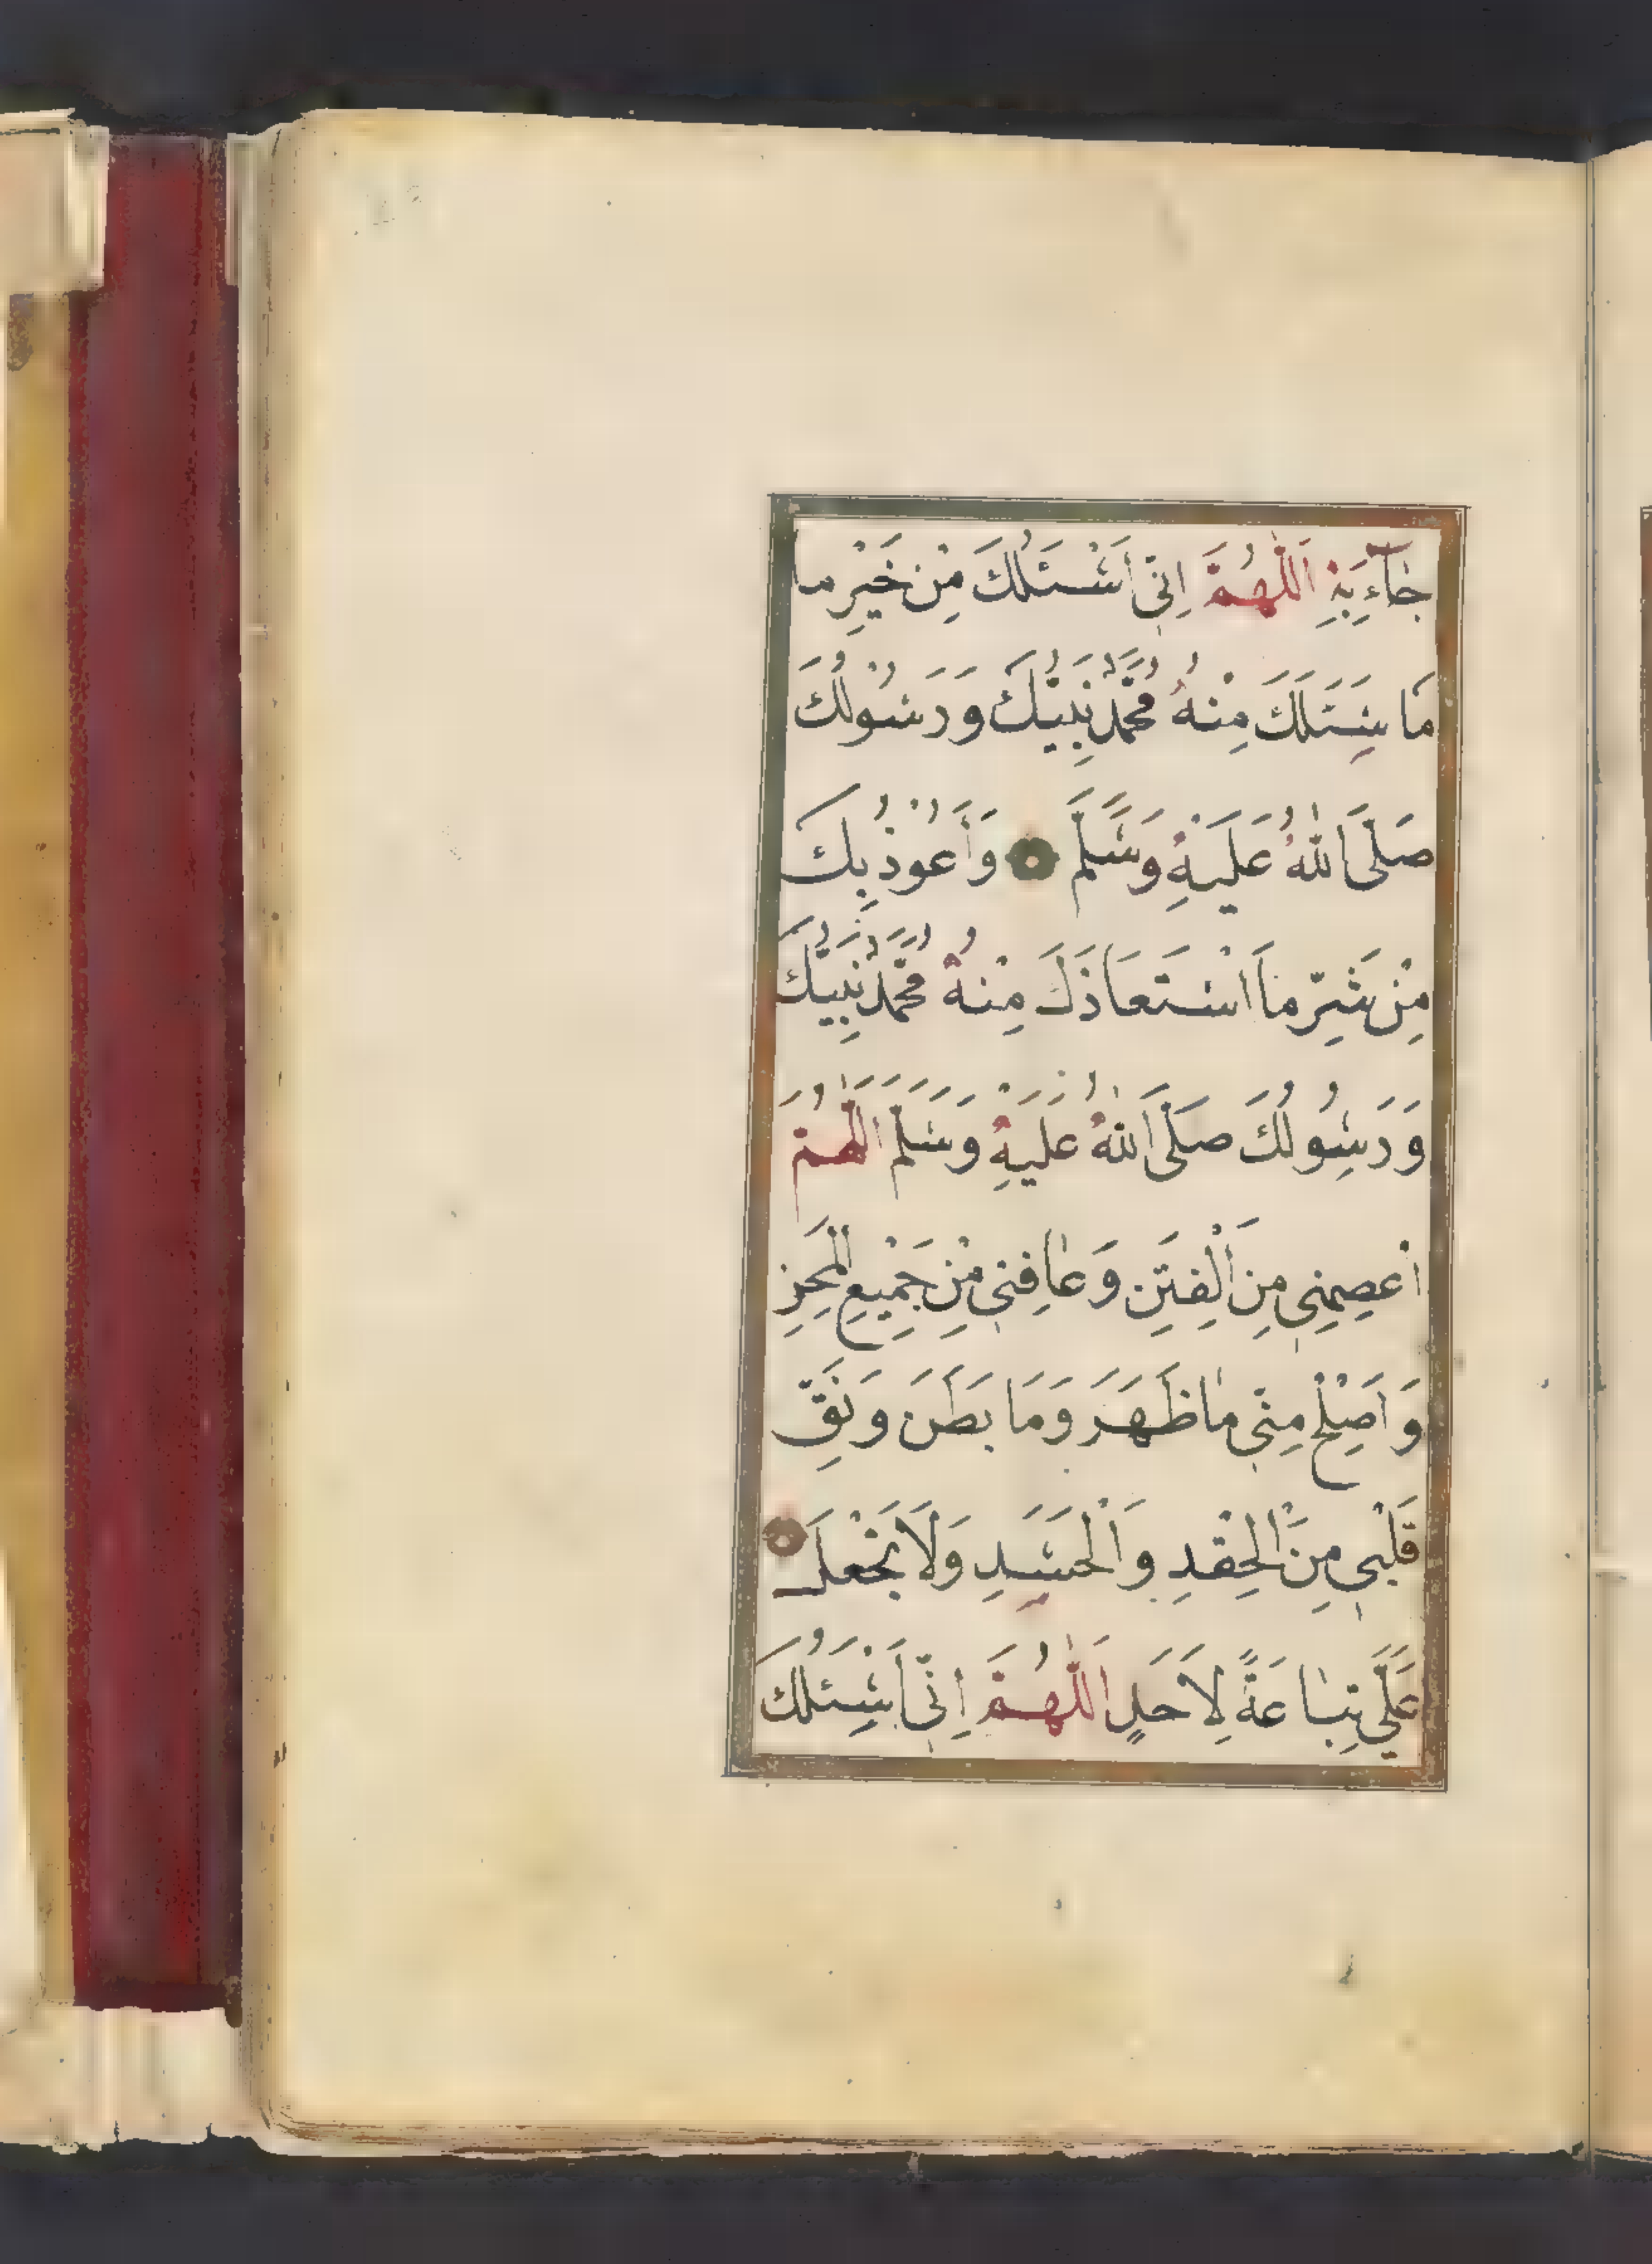 جَآءَ بِهِ اَللّٰهُمَّ اِنّٖى اَسْئَلُكَ مِنْ خَيْرِ ما
مَا سَئَلَكَ مِنْهُ مُحَمَّدٌ نَبِيُّكَ وَرَسُولُكَ
صَلَّى اللّٰهُ عَلَيْهِ وَسَلَّمَ وَاَعُوْذُ بِكَ
مِنْ شَرِّ مَا اسْتَعَاذَكَ مِنْهُ مُحَمَّدٌ نَبِيُّكَ
وَرَسُولُكَ صَلَّى اللّٰهُ عَلَيْهِ وَسَلَّمَ اَللّٰهُمَّ
اعْصِمْنِى مِنَ الْفِتَنِ وَعَافِنِى مِنْ جَمِيْعِ الْمِحَنِ
وَاَصْلِحْ مِنّٖى مَا ظَهَرَ وَمَا بَطَنَ وَنَقِّ
قَلْبِى مِنَ الْحِقْدِ وَالْحَسَدِ وَلَا تَجْعَلْ
عَلَىَّ تِبَاعَةً لِاَحَدٍ اَللّٰهُمَّ اِنّٖى اَسْئَلُكَ